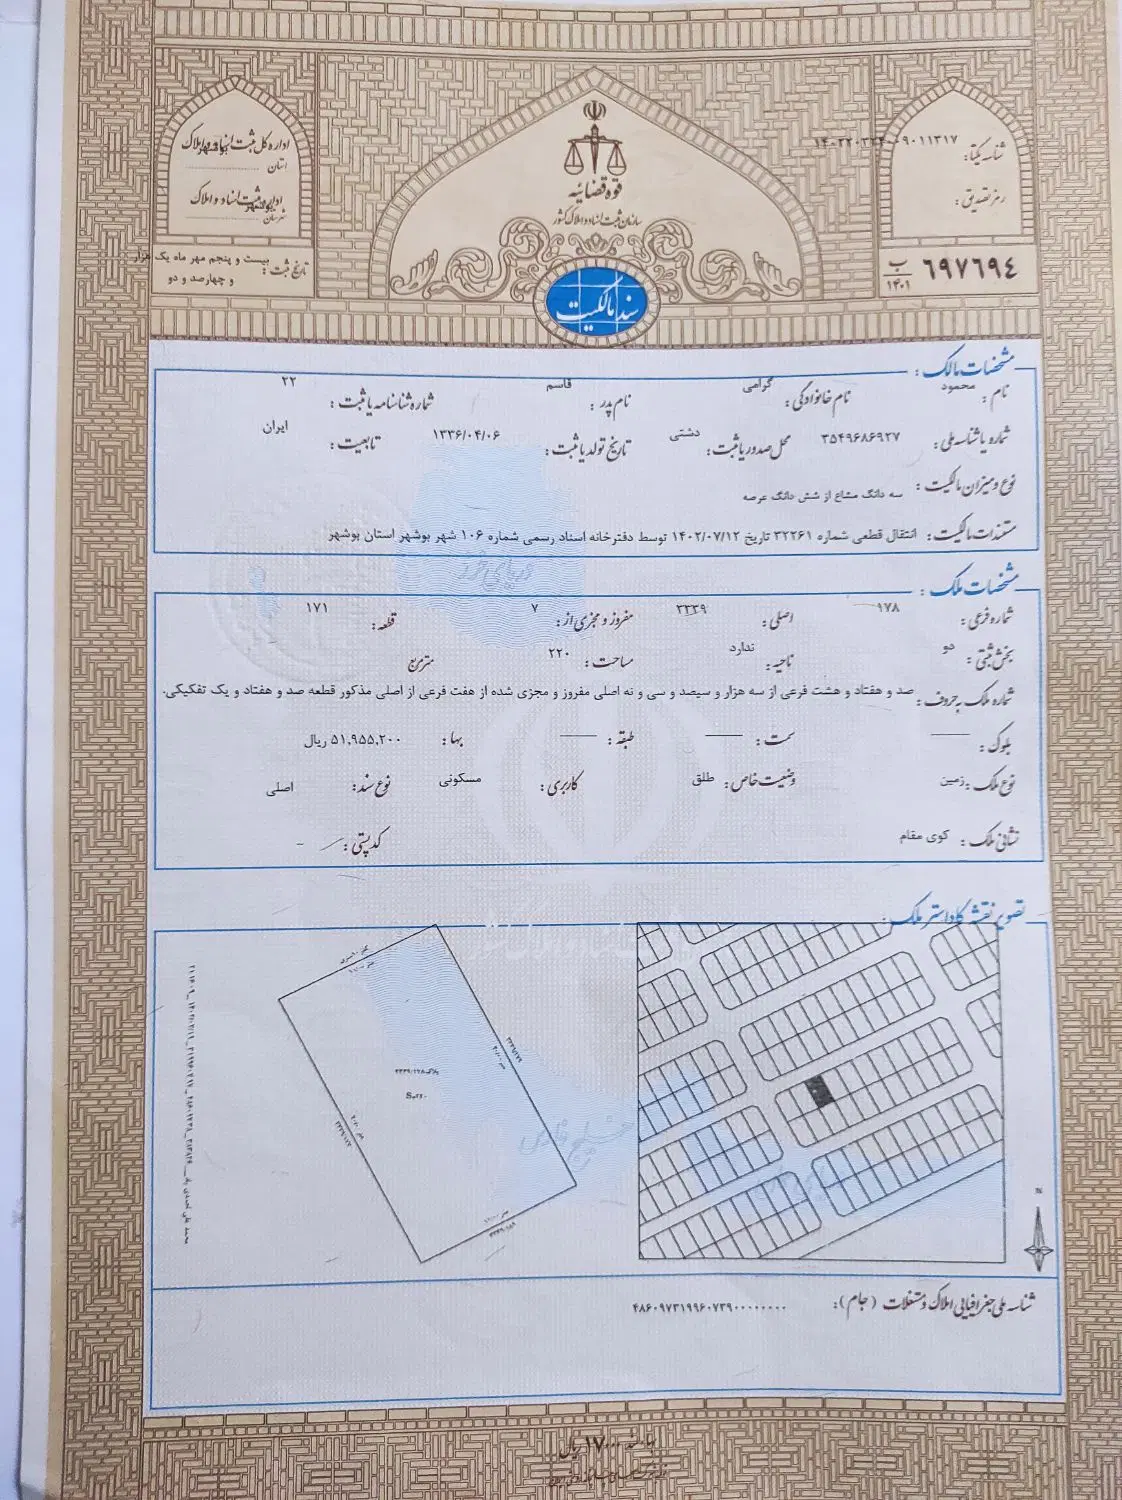 اداره کل ثبت اسناد و املاک
استان بوشهر
اداره ثبت اسناد و املاک
شهرستان بوشهر
تاریخ ثبت: بیست و پنجم مهر ماه یک هزار و چهارصد و دو
قوه قضائیه
سازمان ثبت اسناد و املاک کشور
سند مالکیت
شناسه یکتا:
رمز تصدیق:
۶۹۷۶۹۴ ب ۱۴۰۱
مشخصات مالک:
نام: محمود نام خانوادگی: گرامی نام پدر: قاسم شماره شناسنامه یا ثبت: ۲۲
شماره یا شناسه ملی: ۳۵۴۹۶۸۶۹۲۷ محل صدور یا ثبت: دشتی تاریخ تولد یا ثبت: ۱۳۳۶/۰۴/۰۶ تابعیت: ایران
نوع و میزان مالکیت: سه دانگ مشاع از شش دانگ عرصه
مستندات مالکیت: انتقال قطعی شماره ۳۲۲۶۱ تاریخ ۱۴۰۲/۰۷/۱۲ توسط دفترخانه اسناد رسمی شماره ۱۰۶ شهر بوشهر استان بوشهر
دریای خزر
مشخصات ملک:
شماره فرعی: ۱۷۸ اصلی: ۳۳۳۹ مفروز و مجزی از: ۷ قطعه: ۱۷۱
بخش ثبتی: دو ناحیه: ندارد مساحت: ۲۲۰ مترمربع
شماره ملک به حروف: صد و هفتاد و هشت فرعی از سه هزار و سیصد و سی و نه اصلی مفروز و مجزی شده از هفت فرعی از اصلی مذکور قطعه صد و هفتاد و یک تفکیکی.
بلوک: سمت: طبقه: بها: ۵۱,۹۵۵,۲۰۰ ریال
نوع ملک: زمین وضعیت خاص: طلق کاربری: مسکونی نوع سند: اصلی
نشانی ملک: کوی مقام کد پستی: -
تصویر نقشه کاداستر ملک:
پلاک ۳۳۳۹/۱۷۸
S=۲۲۰
خلیج فارس
N
شناسه ملی جغرافیایی املاک و مستغلات (جام): ۴۸۶۰۹۷۳۱۹۹۶۰۷۳۹۰۰۰۰۰۰۰۰